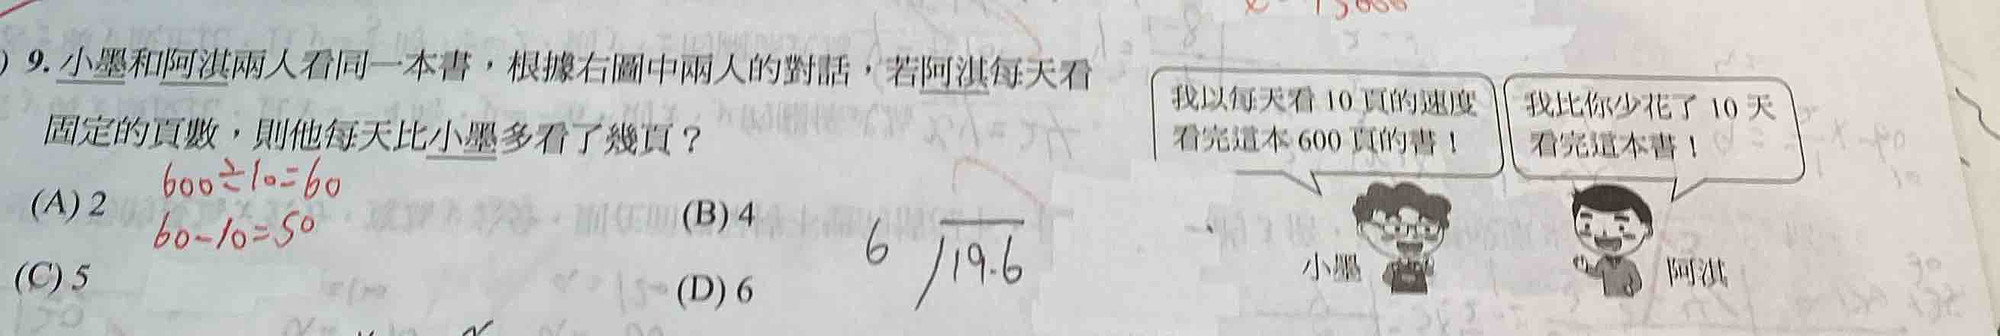 ) 9. 小墨和阿淇兩人看同一本書,根據右圖中兩人的對話,若阿淇每天看
固定的頁數,則他每天比小墨多看了幾頁?
(A) 2
(B) 4
(C) 5
(D) 6
600÷10=60
60-10=50
6
19.6
我以每天看 10 頁的速度
看完這本 600 頁的書!
我比你少花了 10 天
看完這本書!
小墨
阿淇